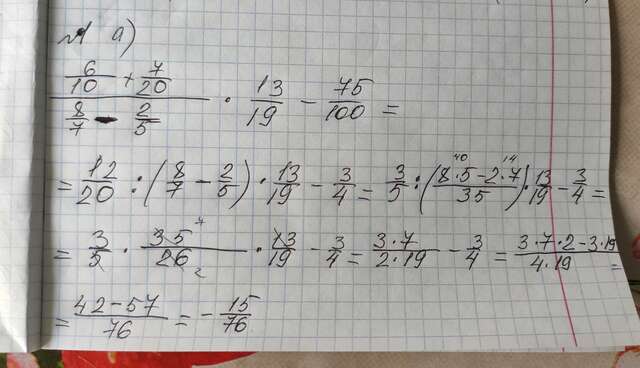 №1 а)
(6/10 + 7/20)/(8/7 - 2/5) · 13/19 - 75/100 =
= 12/20 : (8/7 - 2/5) · 13/19 - 3/4 = 3/5 : ((8·5 - 2·7)/35) · 13/19 - 3/4 =
= 3/5 · 35/26 · 13/19 - 3/4 = 3·7/2·19 - 3/4 = 3·7·2-3·19/4·19 =
= 42-57/76 = - 15/76